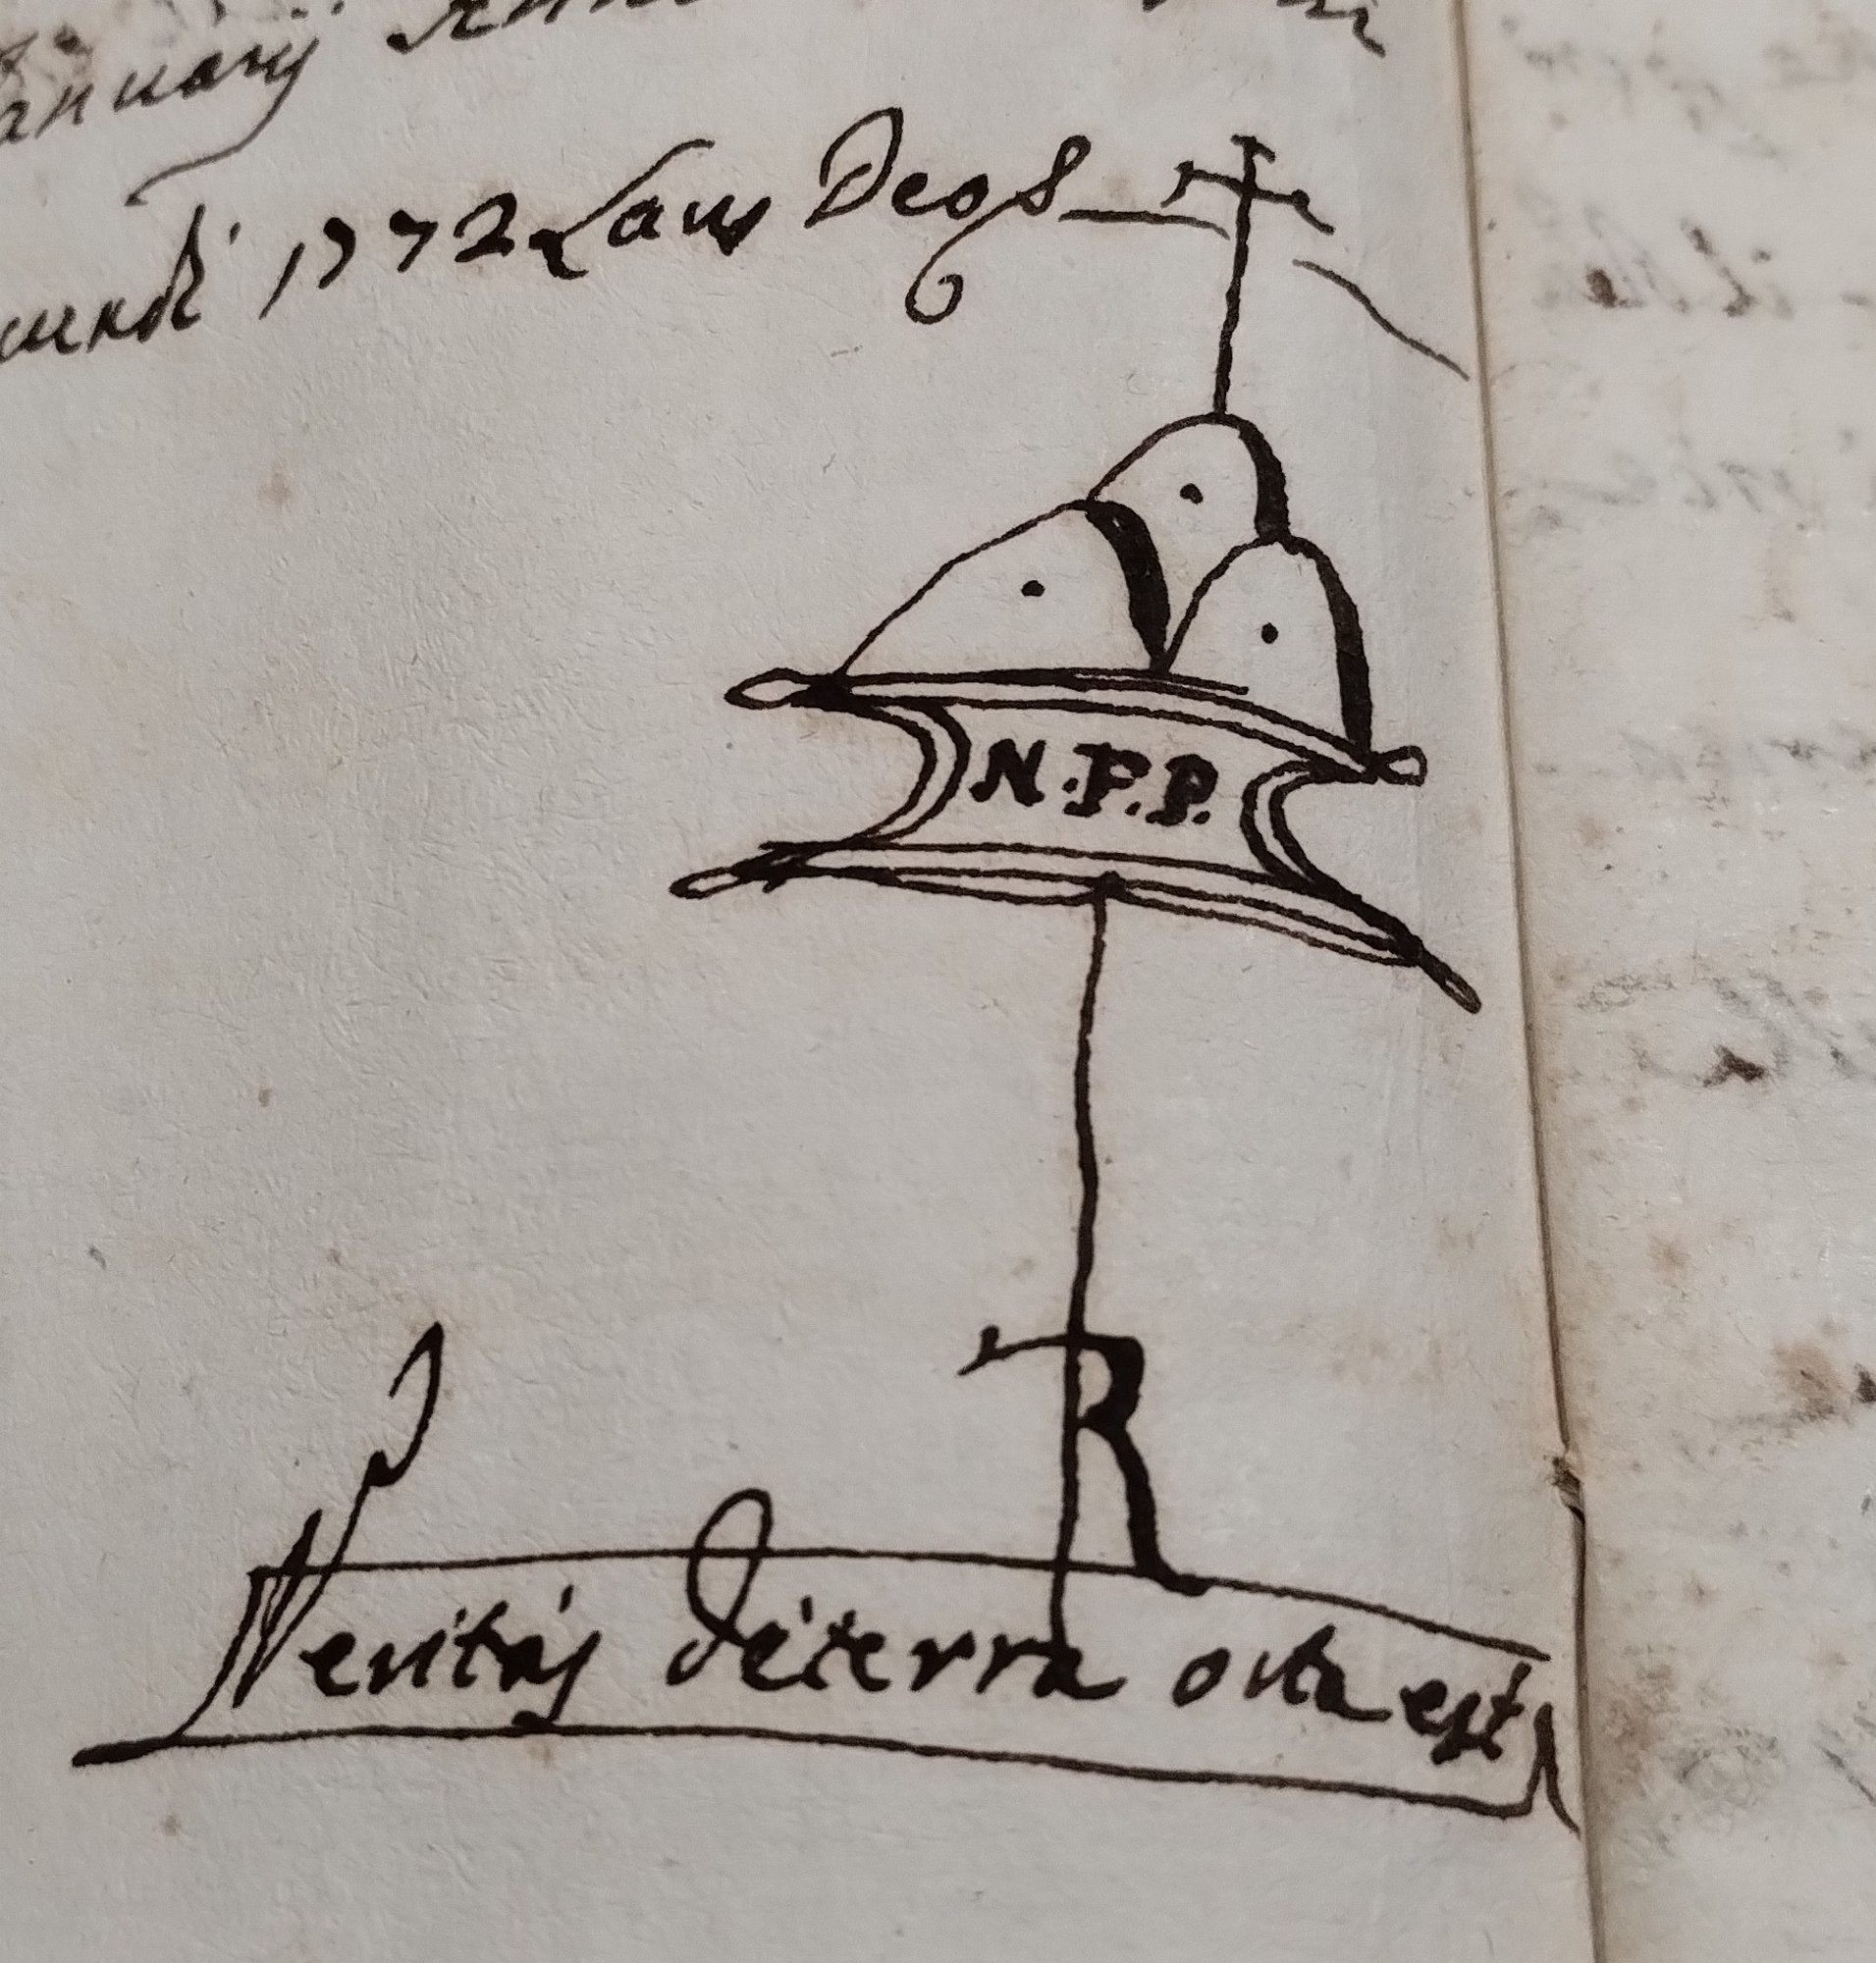 anuarij
1772 Laus Deo
N.P.P.
R
Veritas de terra orta est